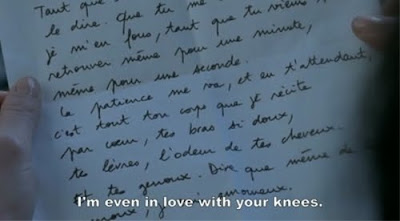 Tant que
le dire. Que tu me
je m'en fous, tant que tu viens
retrouver même pour une minute,
même pour une seconde.
La patience me va, et en t'attendant,
c'est tout ton corps que je récite
par cœur, tes bras si doux,
tes lèvres, l'odeur de tes cheveux.
tes genoux. Dire que même de
amoureux.
I'm even in love with your knees.